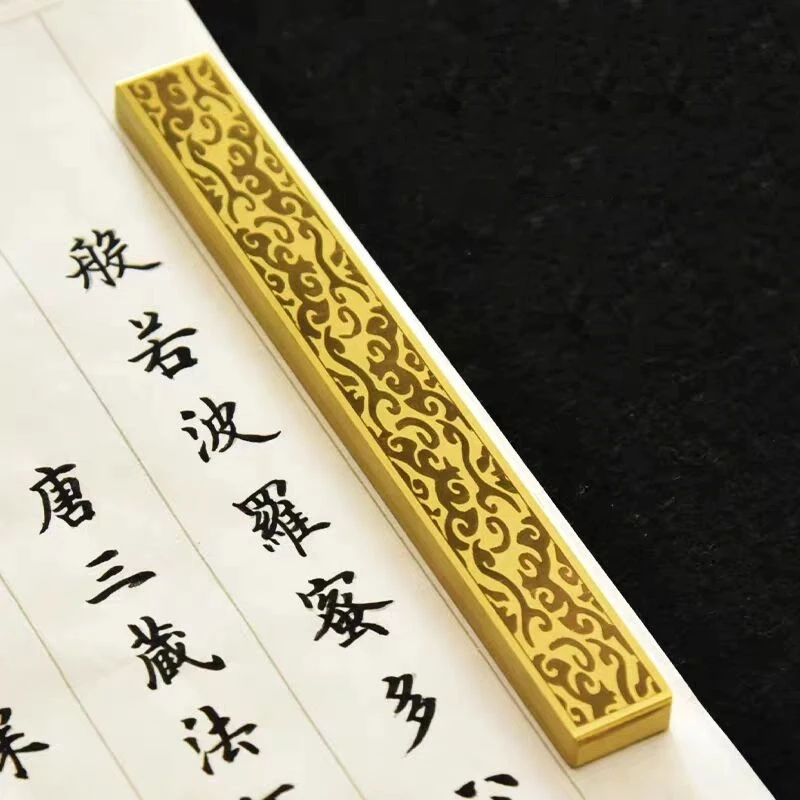 般若波羅蜜多
唐三藏法